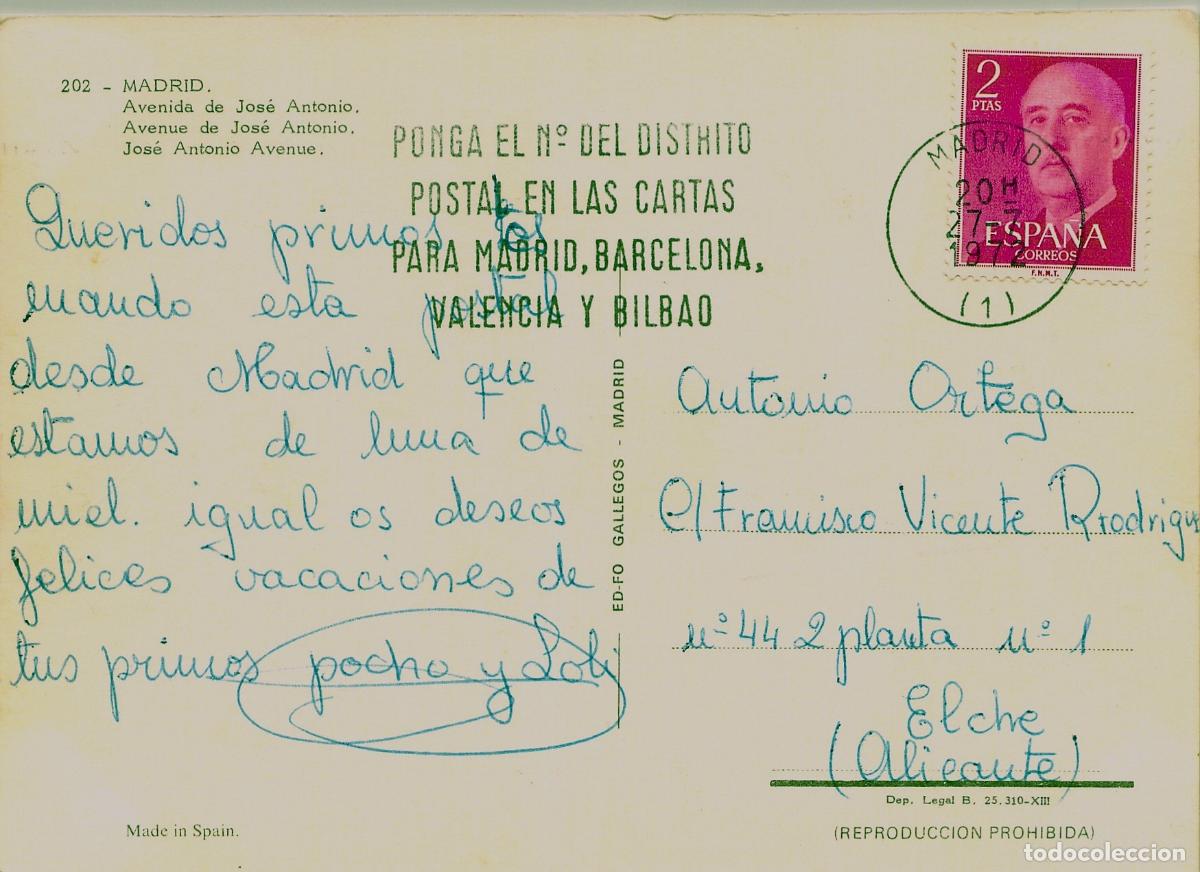 202 - MADRID.
Avenida de José Antonio.
Avenue de José Antonio.
José Antonio Avenue.
PONGA EL Nº DEL DISTRITO
POSTAL EN LAS CARTAS
PARA MADRID, BARCELONA,
VALENCIA Y BILBAO
2
PTAS
ESPAÑA
CORREOS
F.N.M.T.
MADRID
20 H
27-7
1972
(1)
Queridos primos os
mando esta postal
desde Madrid que
estamos de luna de
miel. igual os deseos
felices vacaciones de
tus primos pocho y Loli
ED-FO GALLEGOS - MADRID
Antonio Ortega
C/ Francisco Vicente Rrodrigue
nº 44 2 planta nº 1
Elche
(Alicante)
Dep. Legal B. 25.310-XIII
Made in Spain.
(REPRODUCCION PROHIBIDA)
todocoleccion